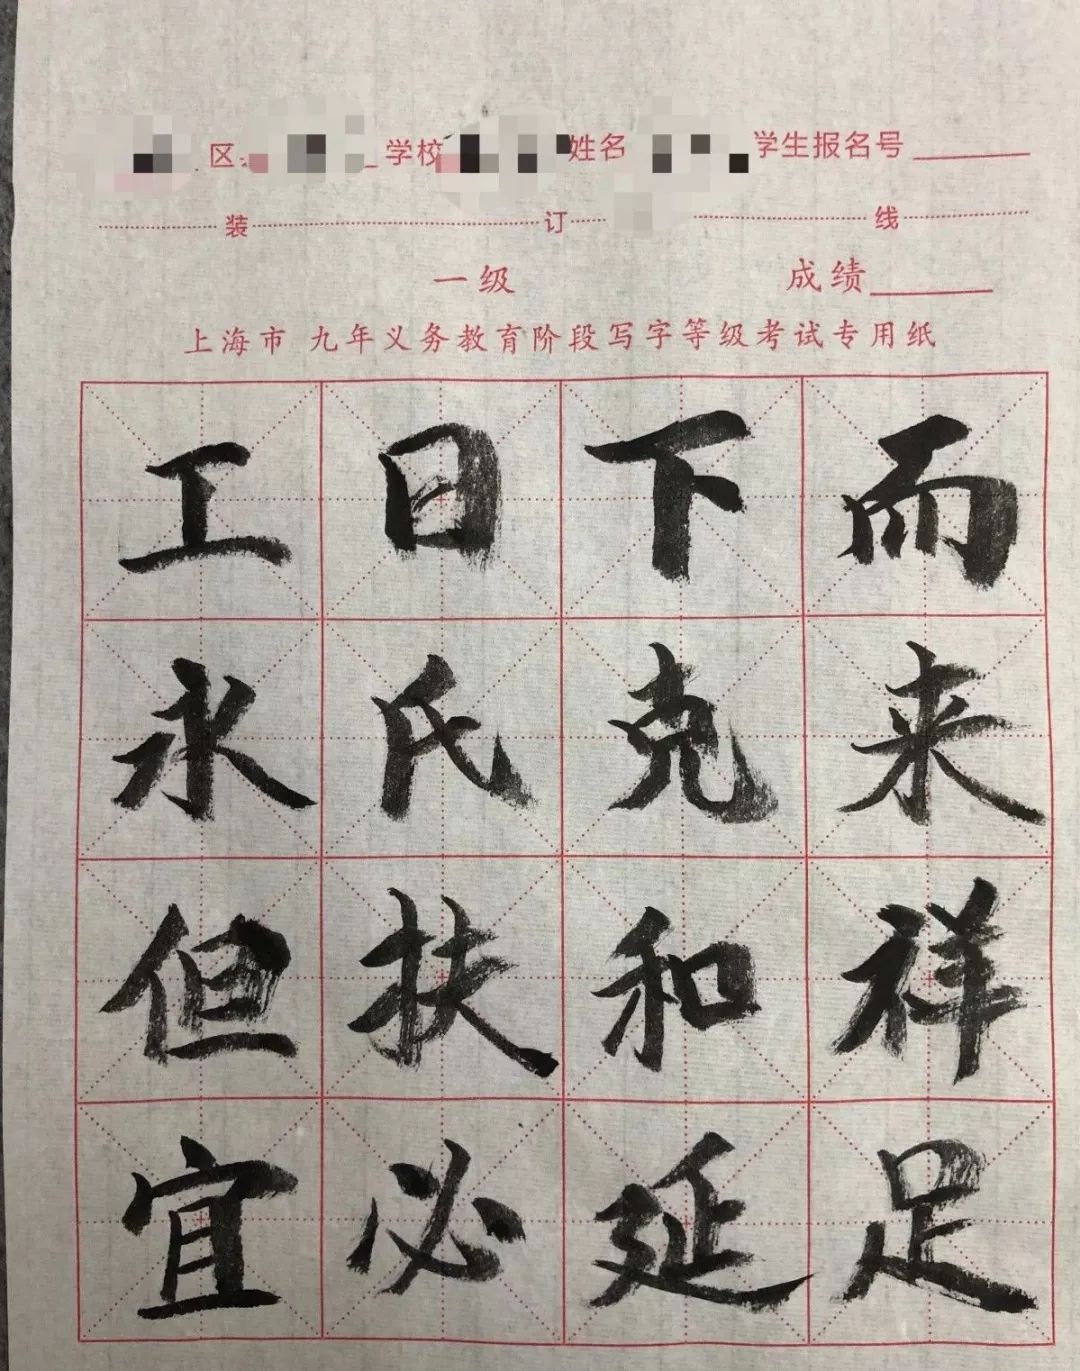 区 学校 姓名 学生报名号
装 订 线
一级 成绩
上海市 九年义务教育阶段写字等级考试专用纸
工日下而
永氏克来
但扶和祥
宜必延足